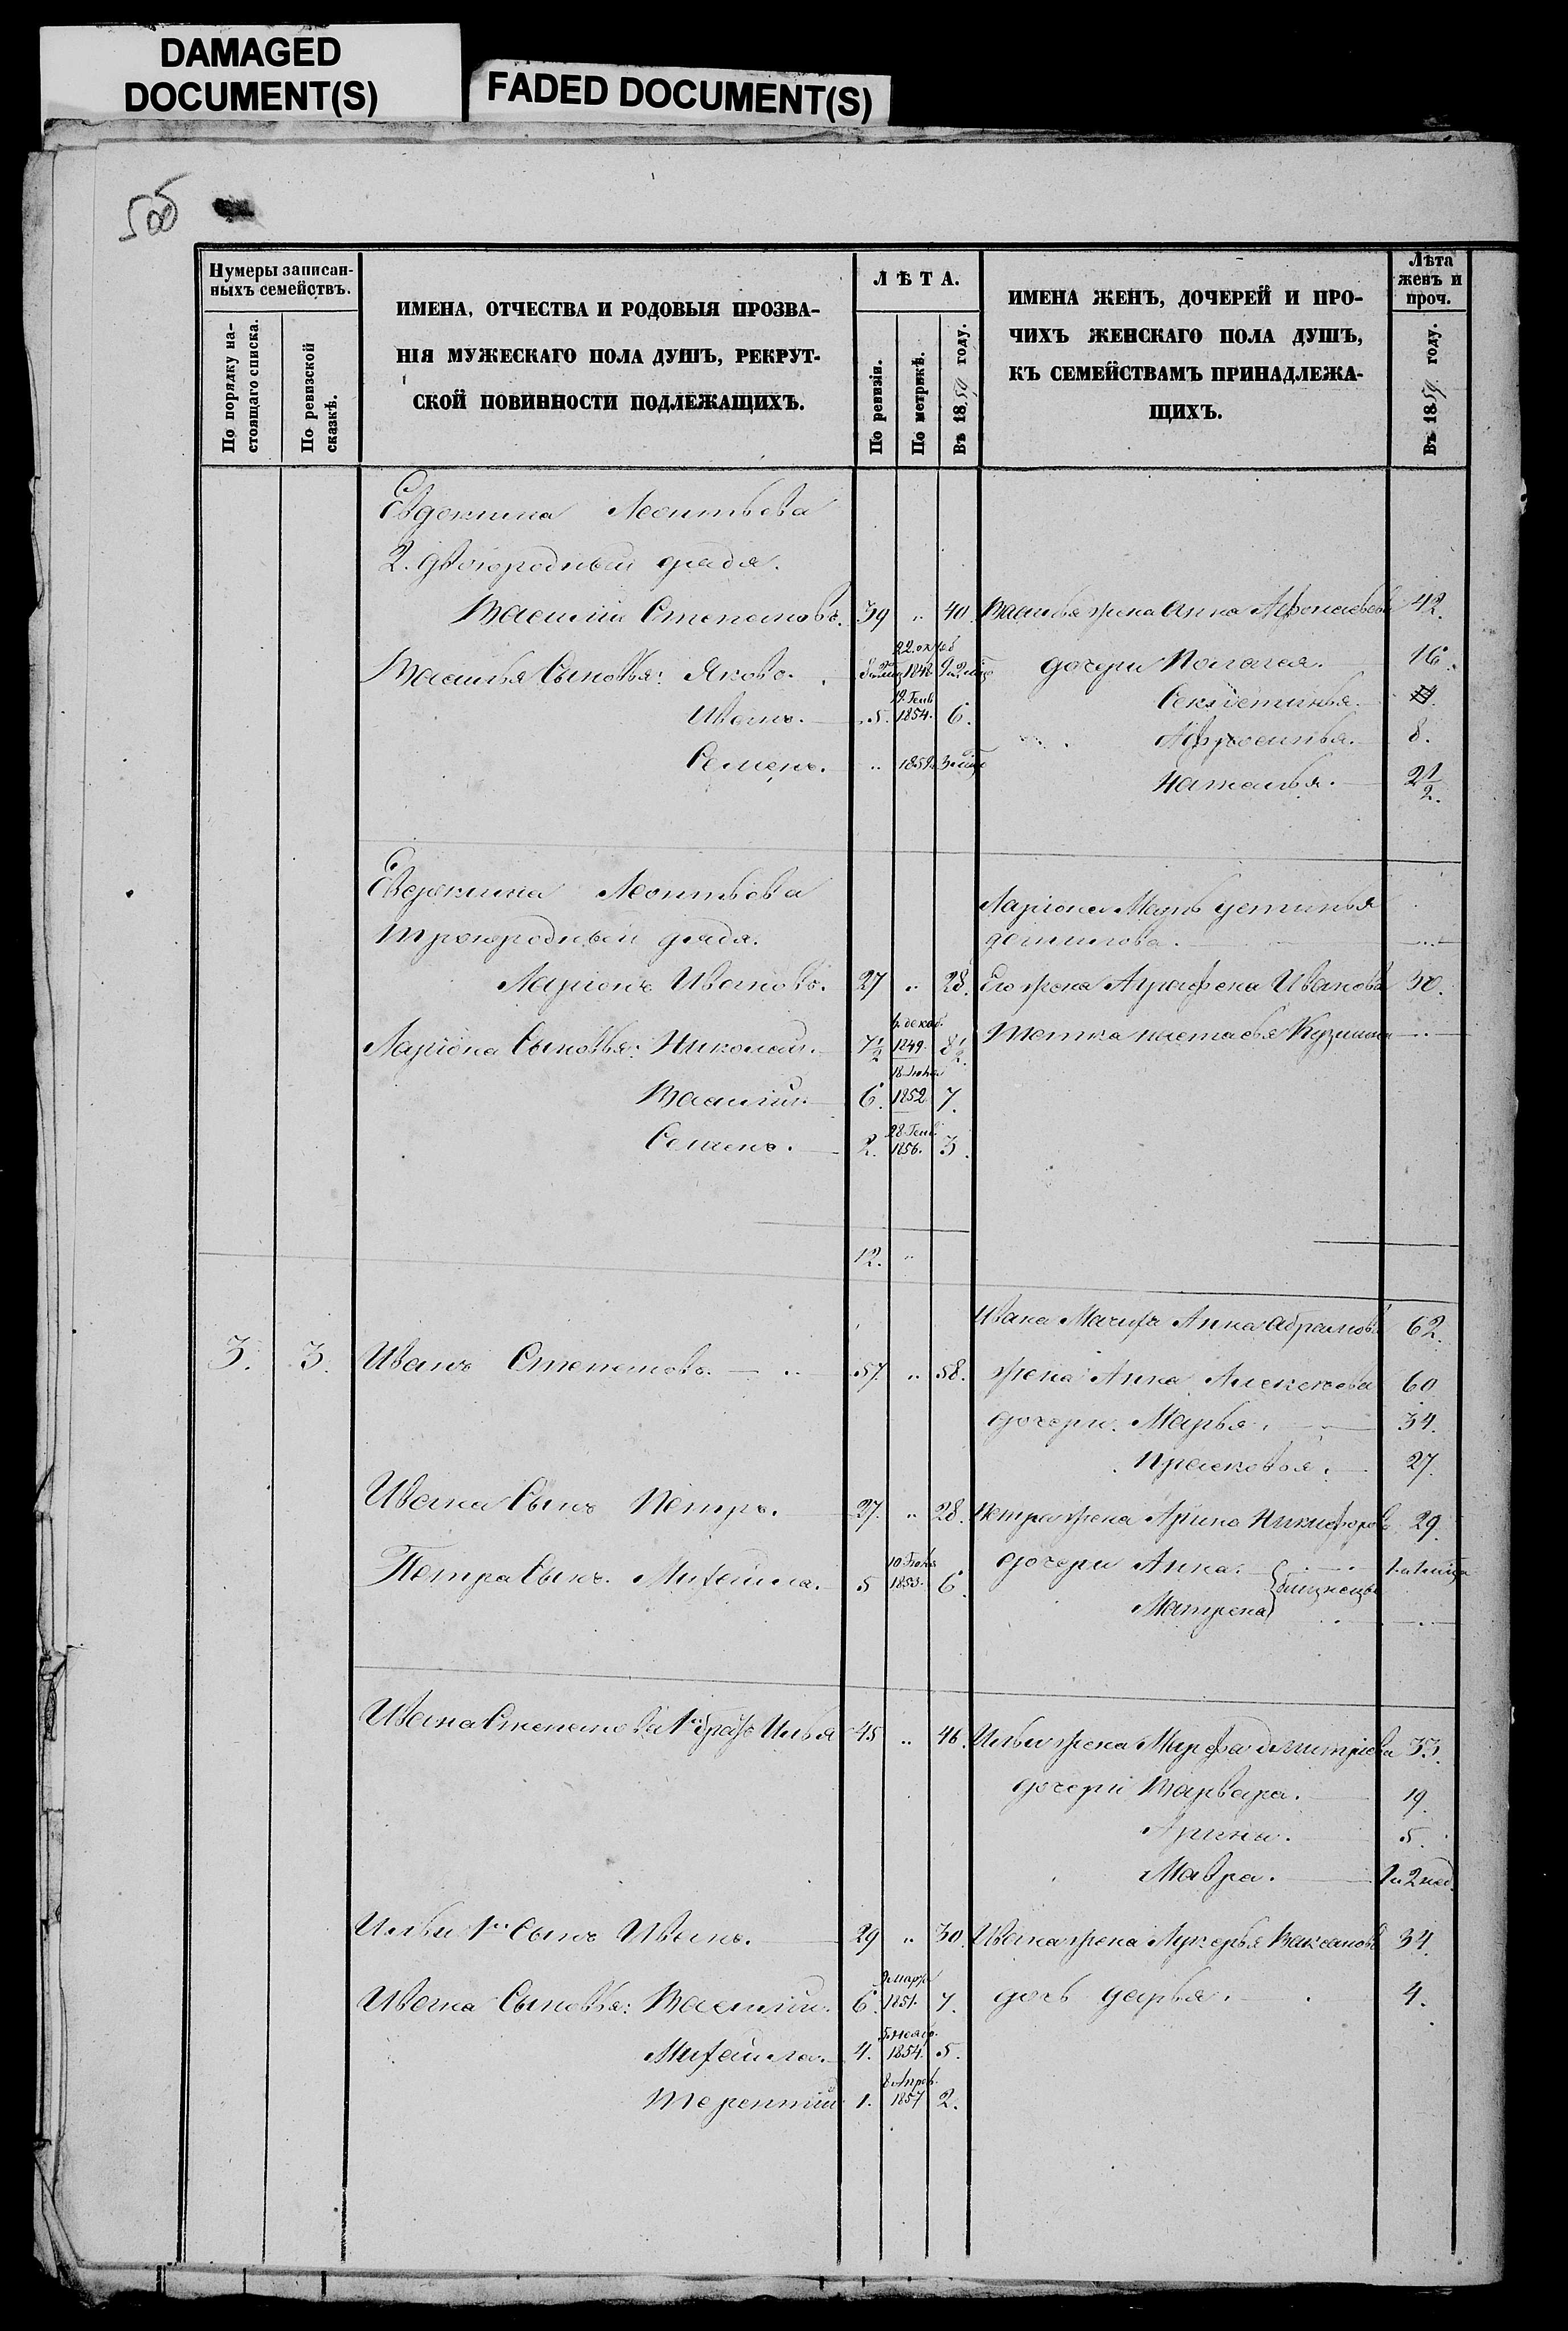 DAMAGED
DOCUMENT(S)
FADED DOCUMENT(S)
500
Нумеры записан-
ныхъ семействъ.
По порядку на-
стоящаго списка.
По ревизской
сказкѣ.
ИМЕНА, ОТЧЕСТВА И РОДОВЫЯ ПРОЗВА-
НІЯ МУЖЕСКАГО ПОЛА ДУШЪ, РЕКРУТ-
СКОЙ ПОВИННОСТИ ПОДЛЕЖАЩИХЪ.
ЛѢТА.
По ревизіи.
По метрикѣ.
Въ 1859 году.
ИМЕНА ЖЕНЪ, ДОЧЕРЕЙ И ПРО-
ЧИХЪ ЖЕНСКАГО ПОЛА ДУШЪ,
КЪ СЕМЕЙСТВАМЪ ПРИНАДЛЕЖА-
ЩИХЪ.
Лѣта
женъ и
проч.
Въ 1859 году.
Леонтьева
2. двоюродный дядя.
Василій Степановъ. 39 " 40. Василья жена Анна 42.
22. октяб
Василья Сыновья: Яковъ. 1848 дочери Пелагея. 16.
19. Генв
Иванъ. 5. 1854. 6.
Афросинья. 8.
Семенъ. " 1859.
Наталья. 2 1/2.
Леонтьева
Ларіона Мать Устинья
троюродный дядя.
Ларіонъ Ивановъ. 27 " 28. Его жена Аграфена Иванова 30.
6. декаб.
Ларіона Сыновья: Николай. 7 1/2 1849. 8 1/2. тетка настасья Кузмина
18.
Василій. 6. 1852. 7.
28. Генв.
Семенъ. 2. 1856. 3.
12. "
Ивана Мачиха Анна Абрамова 62.
3. 3. Иванъ Степановъ. 57. " 58. жена Анна Алексеева 60
дочери. Марья. 34.
Прасковья. 27.
Ивана Сынъ Петръ. 27. " 28. Петра жена Арина Никифорова 29.
10
Петра Сынъ. Михайла. 5 1853. 6. дочери Анна.
близнецы
Матрена
Ивана Степанова 1й братъ Илья 45 " 46. Ильи жена Марфа Дмитріева 33.
дочери Варвара. 19.
Арина. 5.
Мавра. 1 и 2 нед.
Ильи 1й Сынъ Иванъ. 29 " 30. Ивана жена Лукерья 34.
марта
Ивана Сыновья: Василій. 6. 1851. 7. дочь Дарья. 4.
5. нояб.
Михайла. 4. 1854. 5.
8 Апрел.
терентій 1. 1857 2.